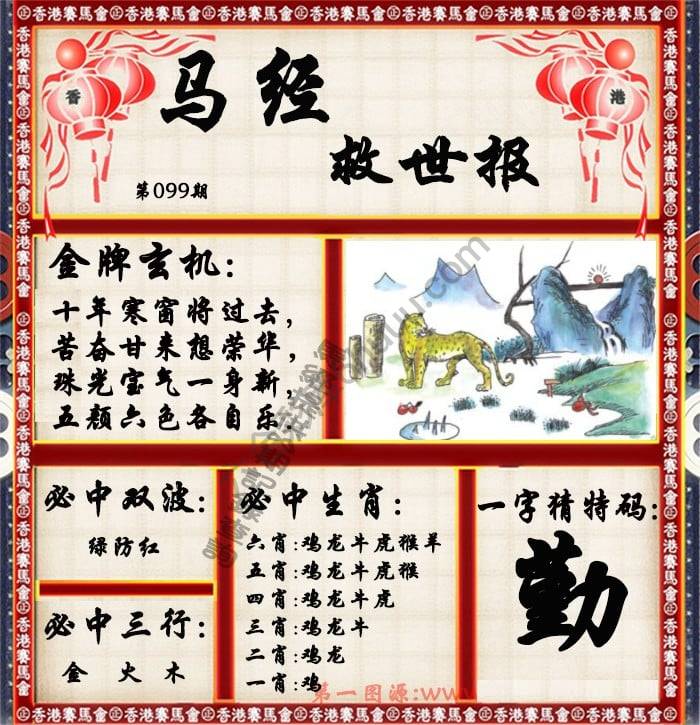 香港賽馬會
香
港
马经
救世报
第099期
金牌玄机:
十年寒窗将过去,
苦奋甘来想荣华,
珠光宝气一身新,
五颜六色各自乐.
必中双波:
绿防红
必中三行:
金 火 木
必中生肖:
六肖:鸡龙牛虎猴羊
五肖:鸡龙牛虎猴
四肖:鸡龙牛虎
三肖:鸡龙牛
二肖:鸡龙
一肖:鸡
一字猜特码:
勤
第一图源:www